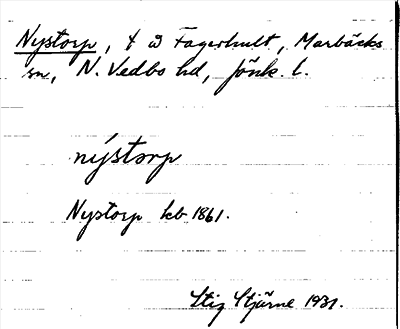 Nystorp, t ω Fagerhult, Marbäcks
sn, N. Vedbo hd, Jönk. l.
nýstorp
Nystorp kb 1861.
Stig Stjärne 1931.